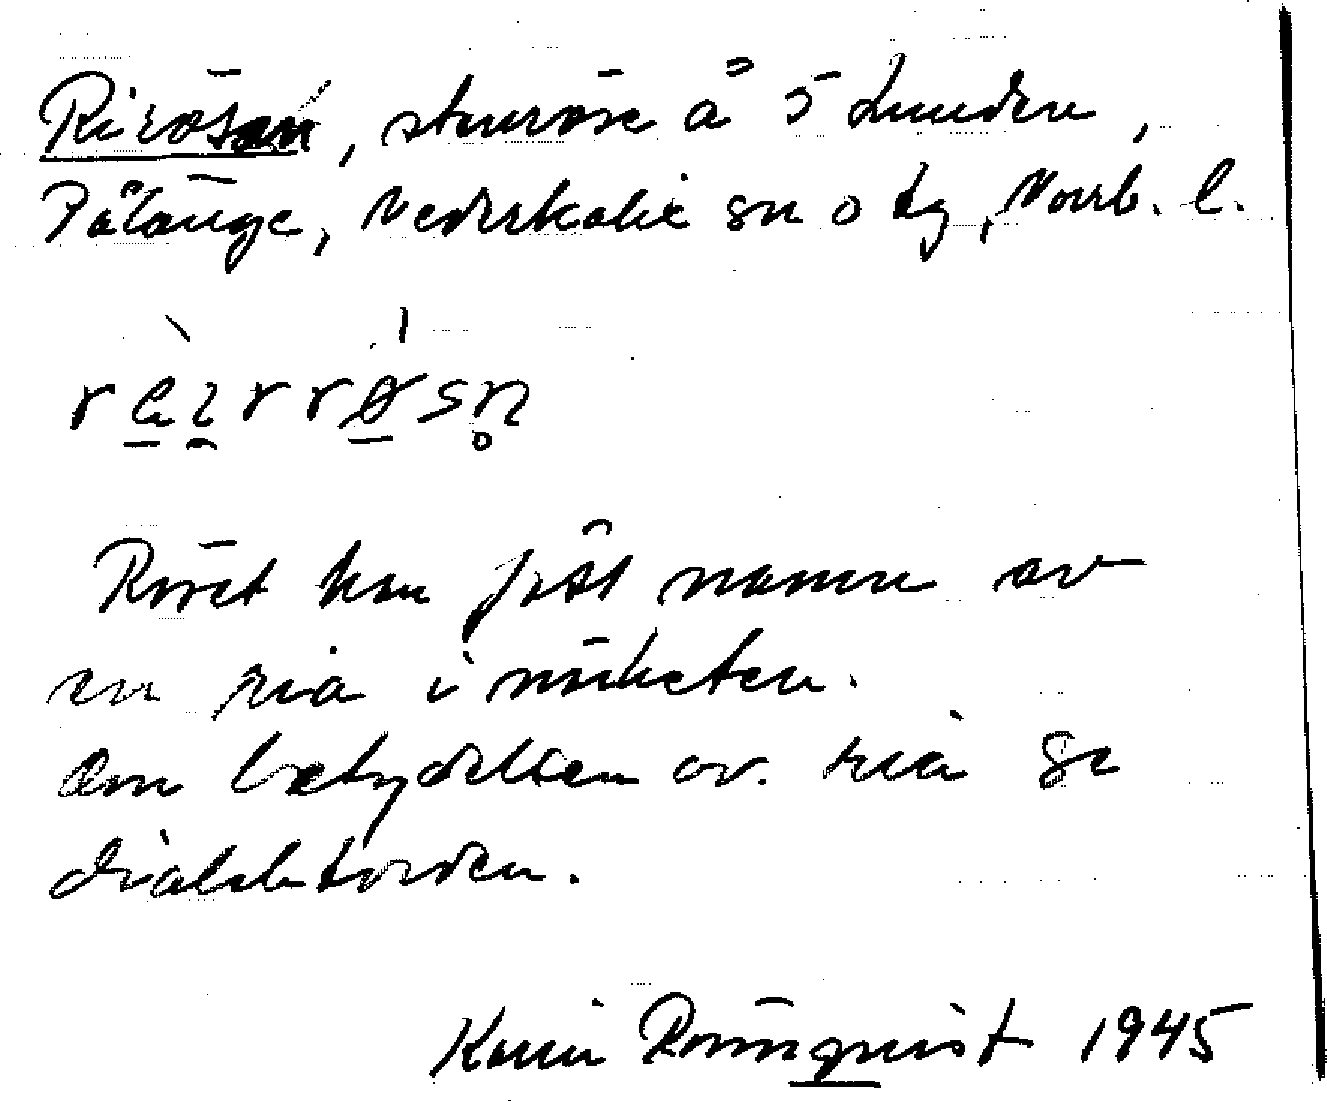 Rirösen, stenröse å S Lunden,
Pålänge, Nederkalix sn o tg, Norrb. l.
Röset kan fått namn av
en ria i närheten.
Om betydelsen av ria se
dialektorden.
Karin Rönnqvist 1945